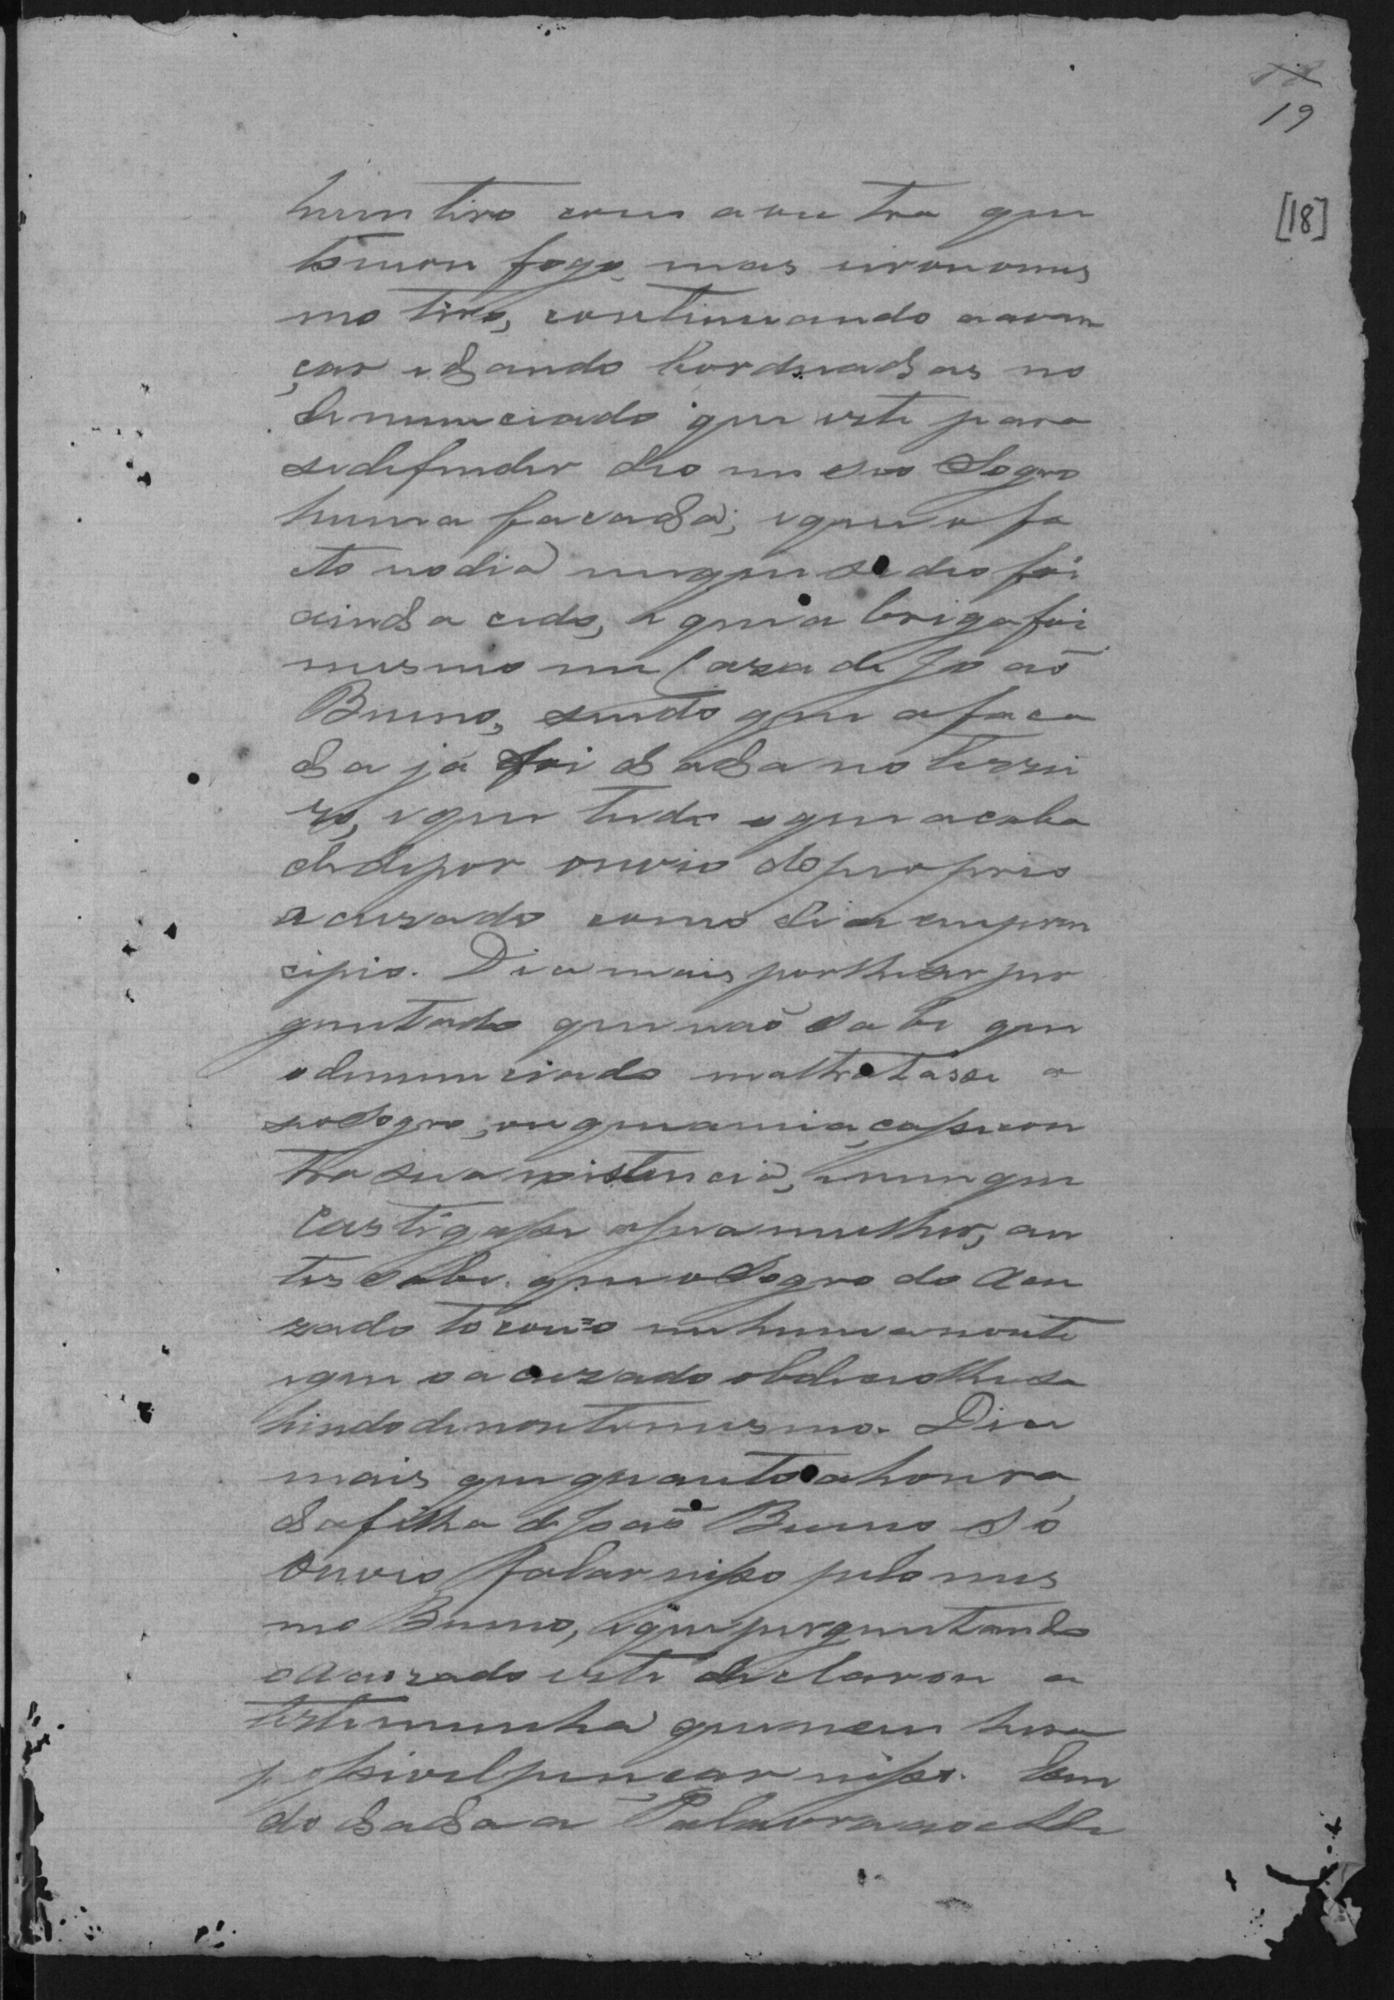 19
[18]
hum tiro com a outra que
tomou fogo mas errou o mes
mo tiro, continuando a avan
çar e dando borduadas no
denunciado que este para
se defender deo em seo Sogro
huma facada; e que o fa
cto no dia em que se deo foi
ainda cedo, e que a briga foi
mesmo na Caza de João
Bueno, sendo que a faca
da já foi dada no terrei
ro, e que tudo o que acaba
de depor ouvio do proprio
acuzado como dice em prin
cipio. Dice mais por lhe ser per
guntado que não sabe que
o denunciado maltratasse a
seo Sogro, ou que ameaçasse con
tra sua existencia, e nem que
Castigasse a sua mulher, an
tes sabe que o Sogro do Acu
zado tocou=o em huma noute
e que o acuzado obdeceo lhe sa
hindo de noute mesmo. Dice
mais que quanto a honra
da filha de João Bueno só
ouvio falar nisso pelo mes
mo Bueno, e que perguntando
o Acuzado este declarou a
testemunha que nem hera
possivel pençar nisso. Sen
do dada a Palavra ao